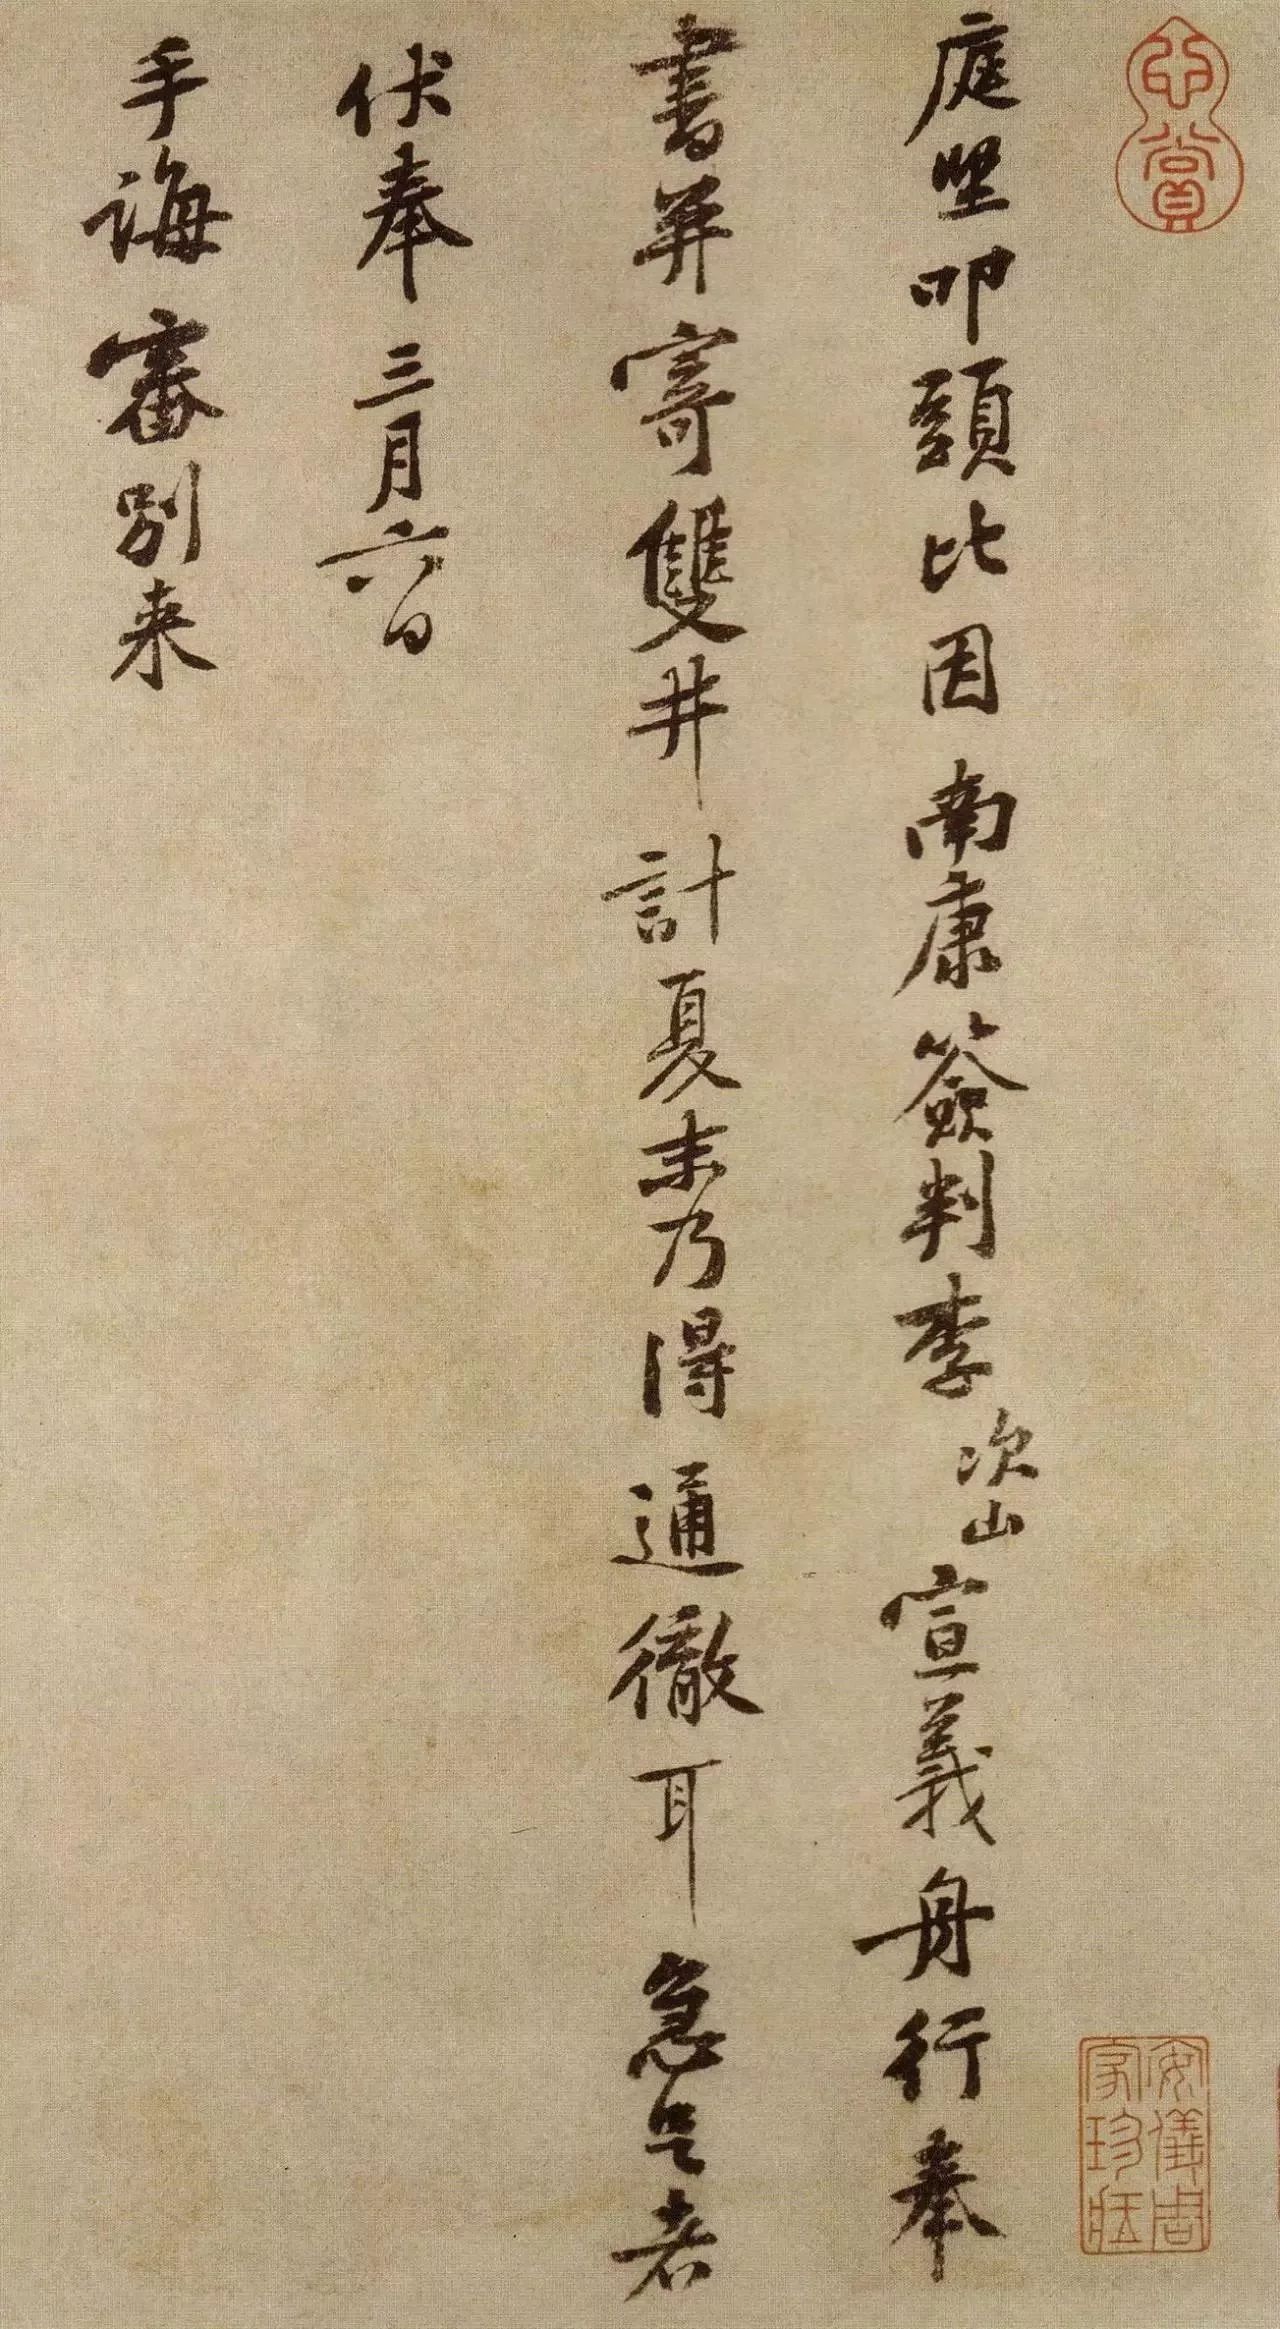 庭堅叩頭比因南康簽判李次山宣義舟行奉
書并寄雙井計夏末乃得通徹耳急足者
伏奉三月六日
手誨審別来
心賞
安儀周家珍藏